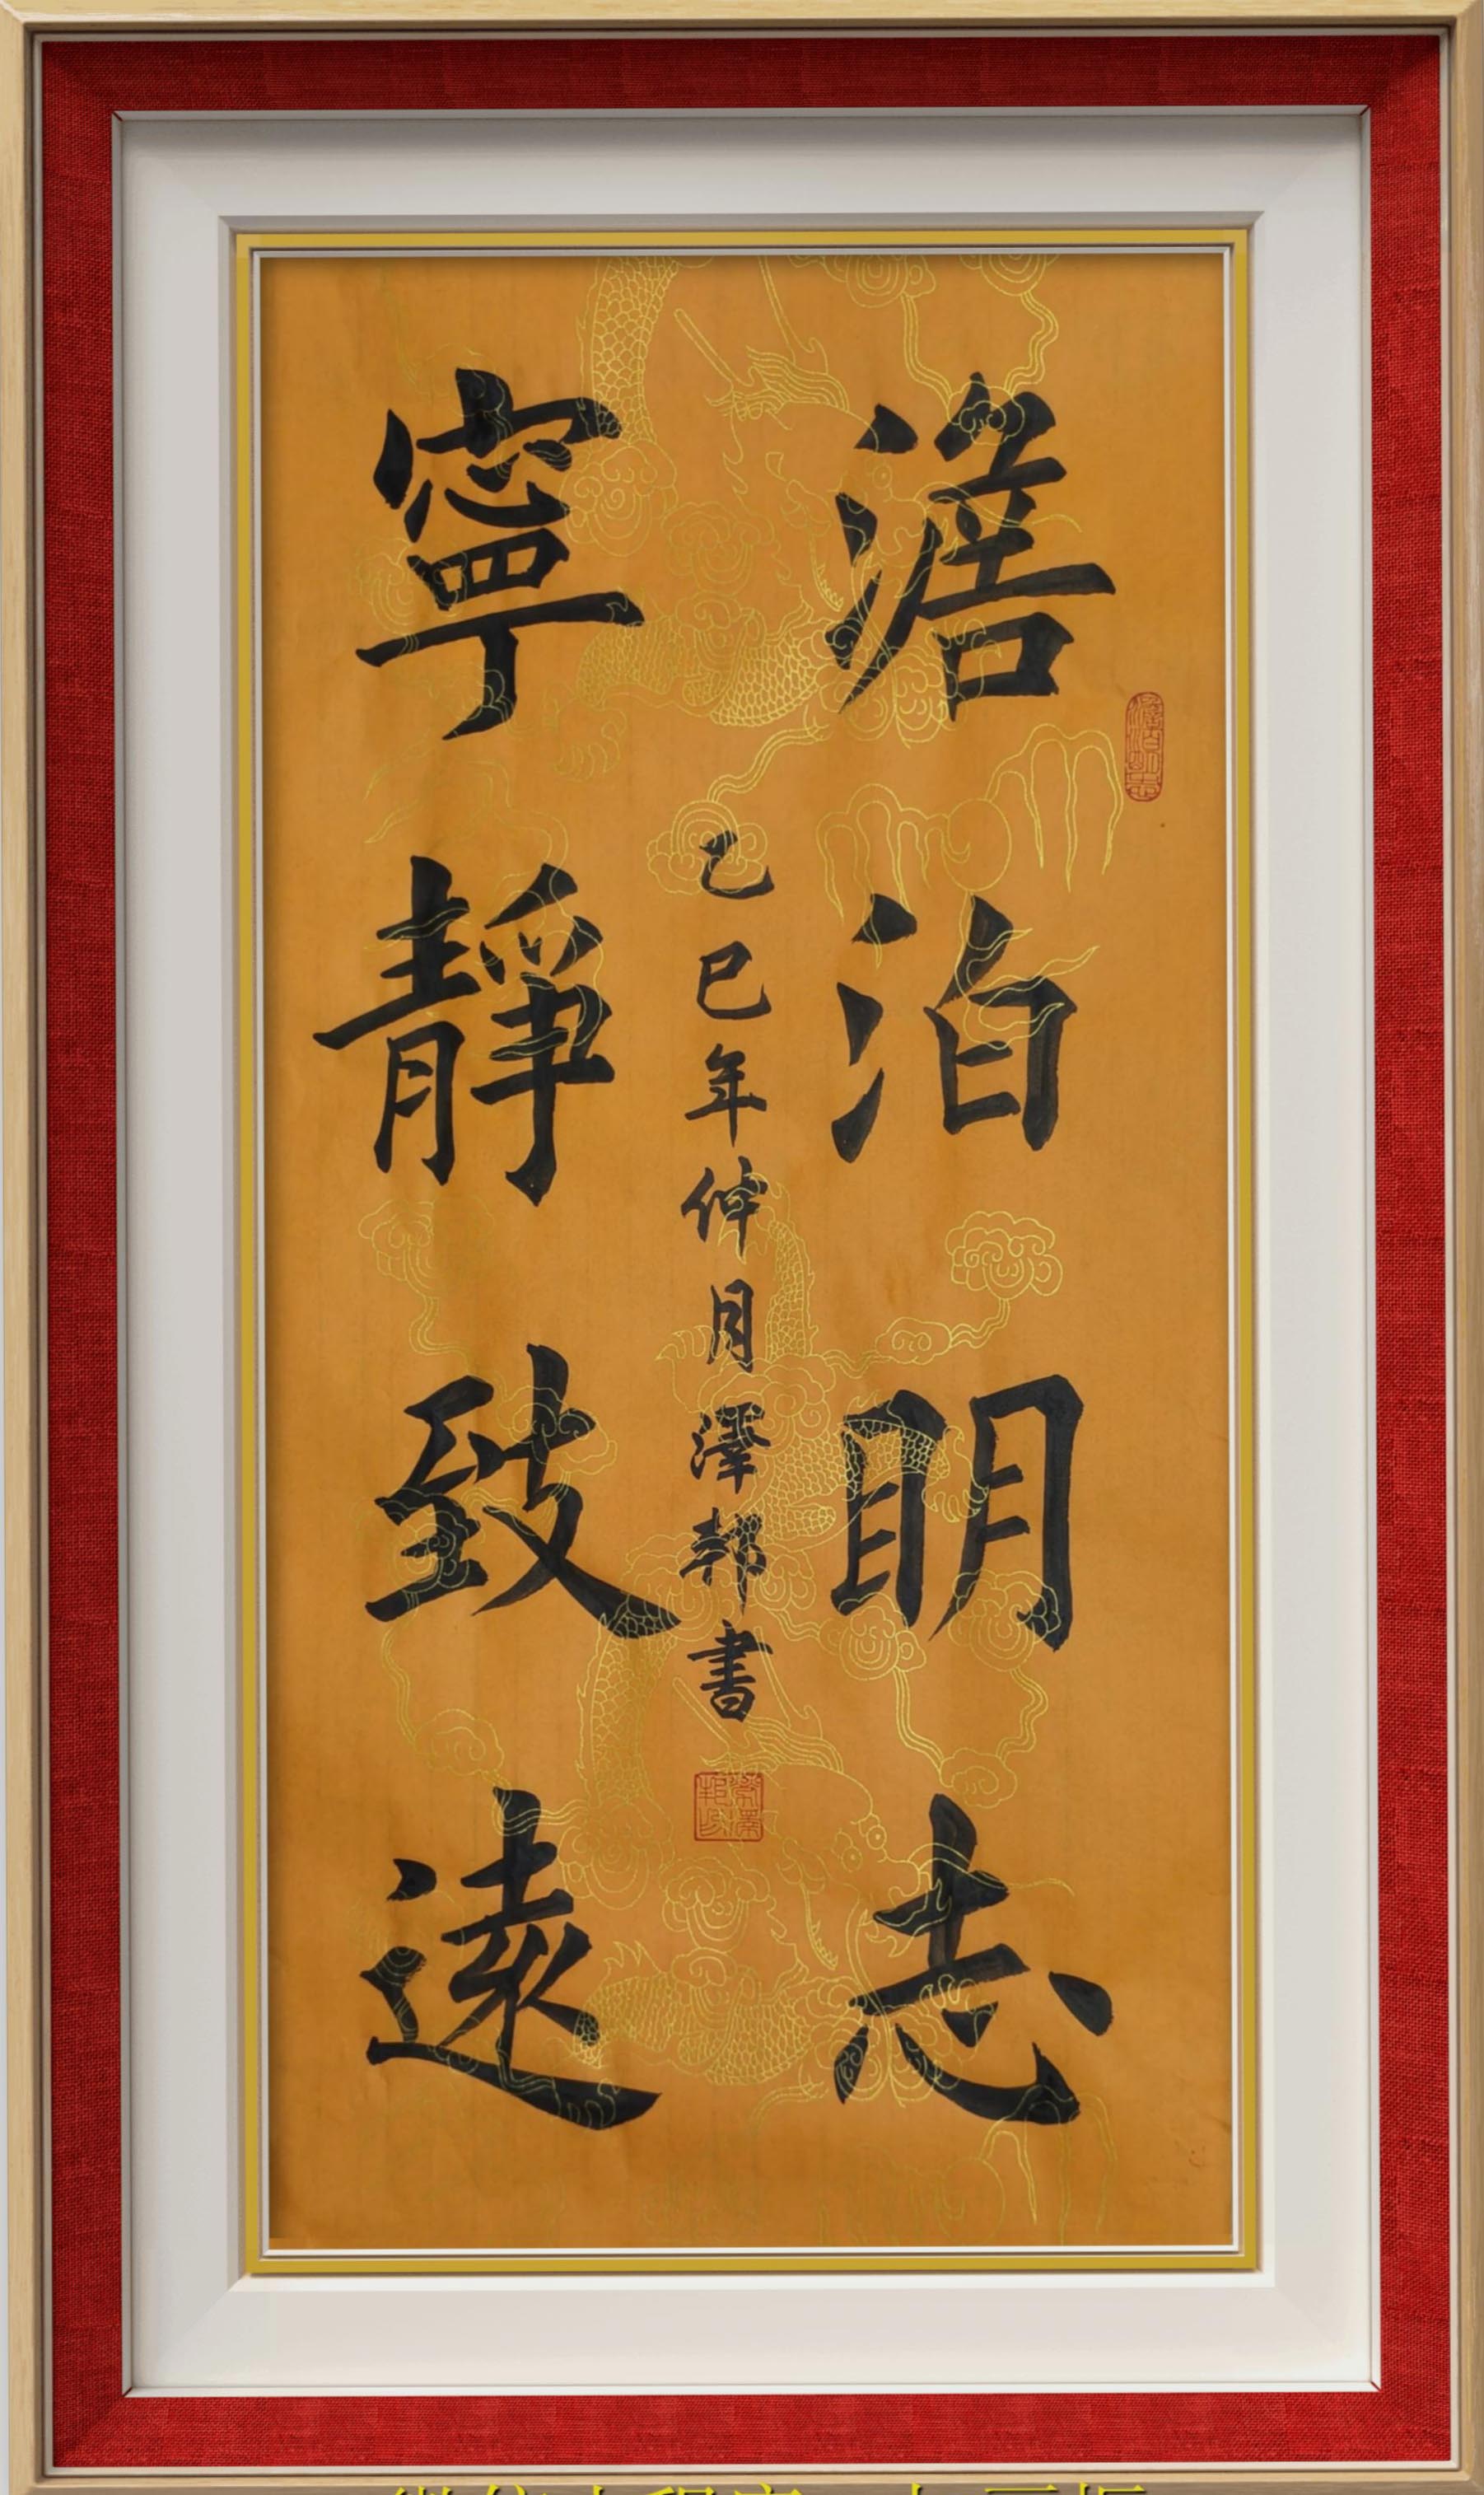 澹泊明志
乙巳年仲月澤邦書
寧靜致遠